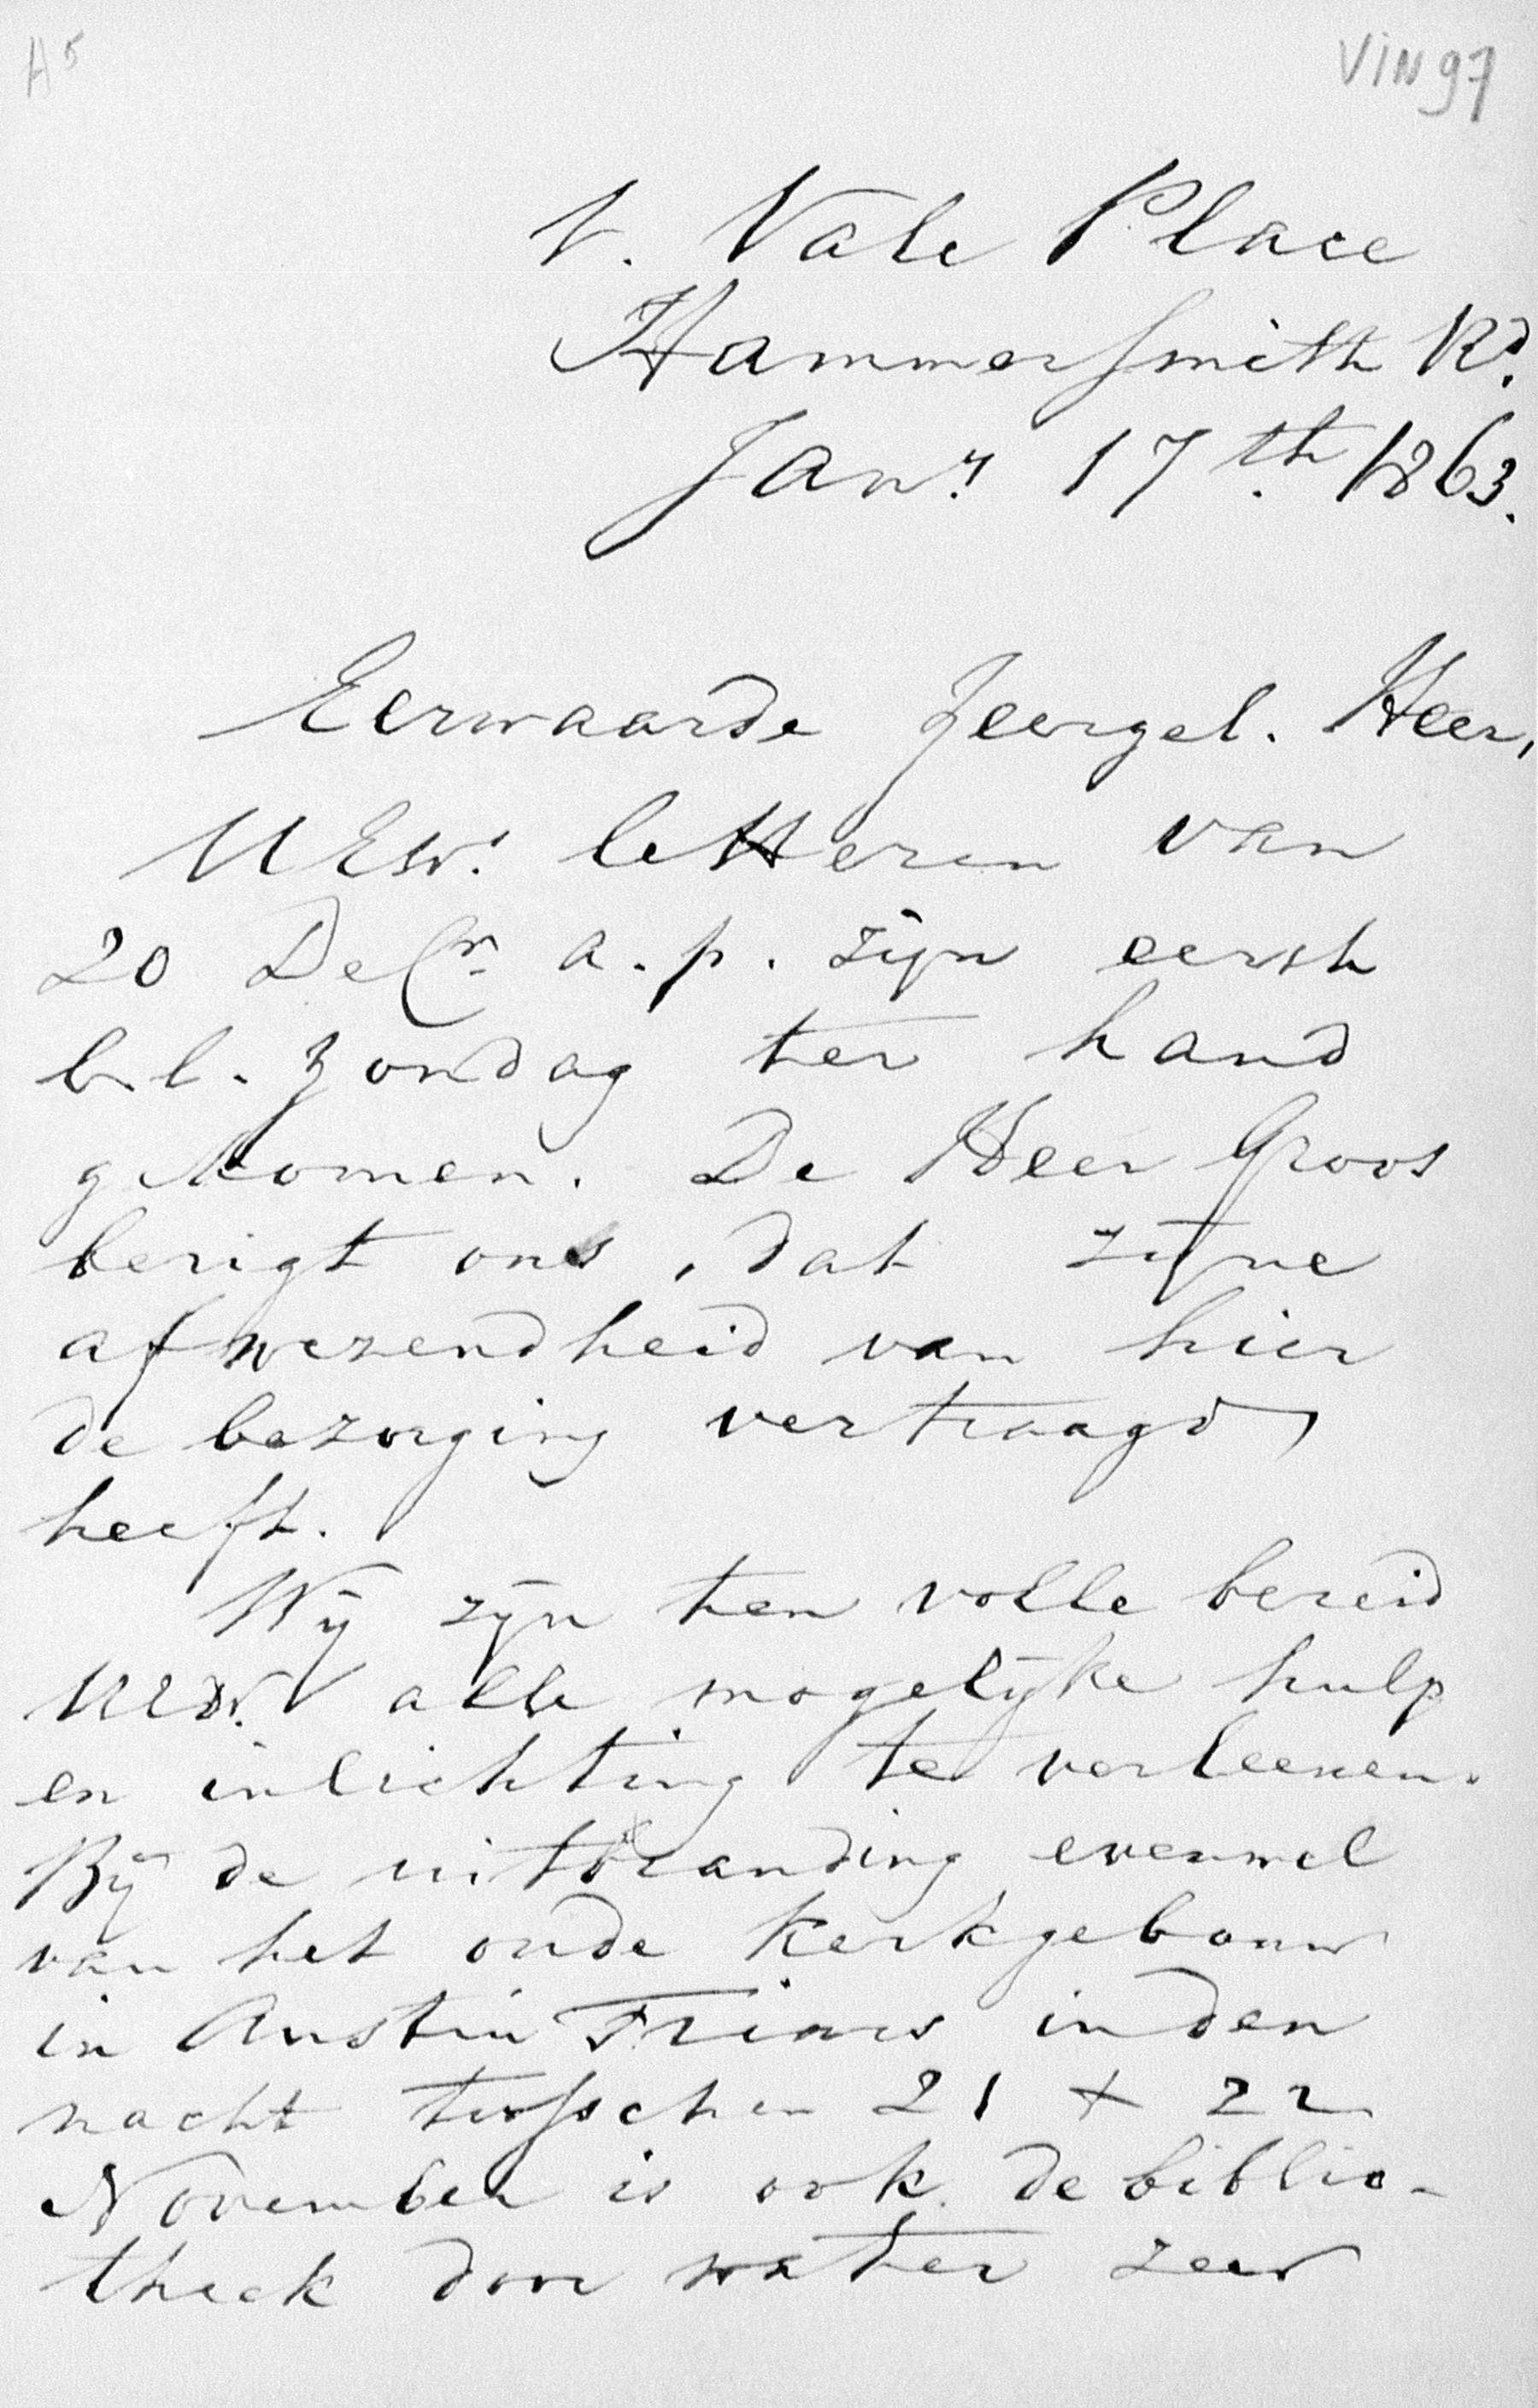 A5
VIN97
1. Vale Place
Hammersmith Rd.
Jany. 17th. 1863.
Eerwaarde Zeergel. Heer,
UEw. letteren van
20 Decr. a.p. zijn eerst
l.l. Zondag ter hand
gekomen. De Heer Groos
berigt ons, dat zijne
afwezendheid van hier
de bezorging vertraagd
heeft.
Wij zijn ten volle bereid
UEw. alle mogelijke hulp
en inlichting te verleenen.
Bij de uitbranding evenwel
van het oude Kerkgebouw
in Austin Friars in den
nacht tusschen 21 + 22
November is ook de biblio-
theek door water zeer